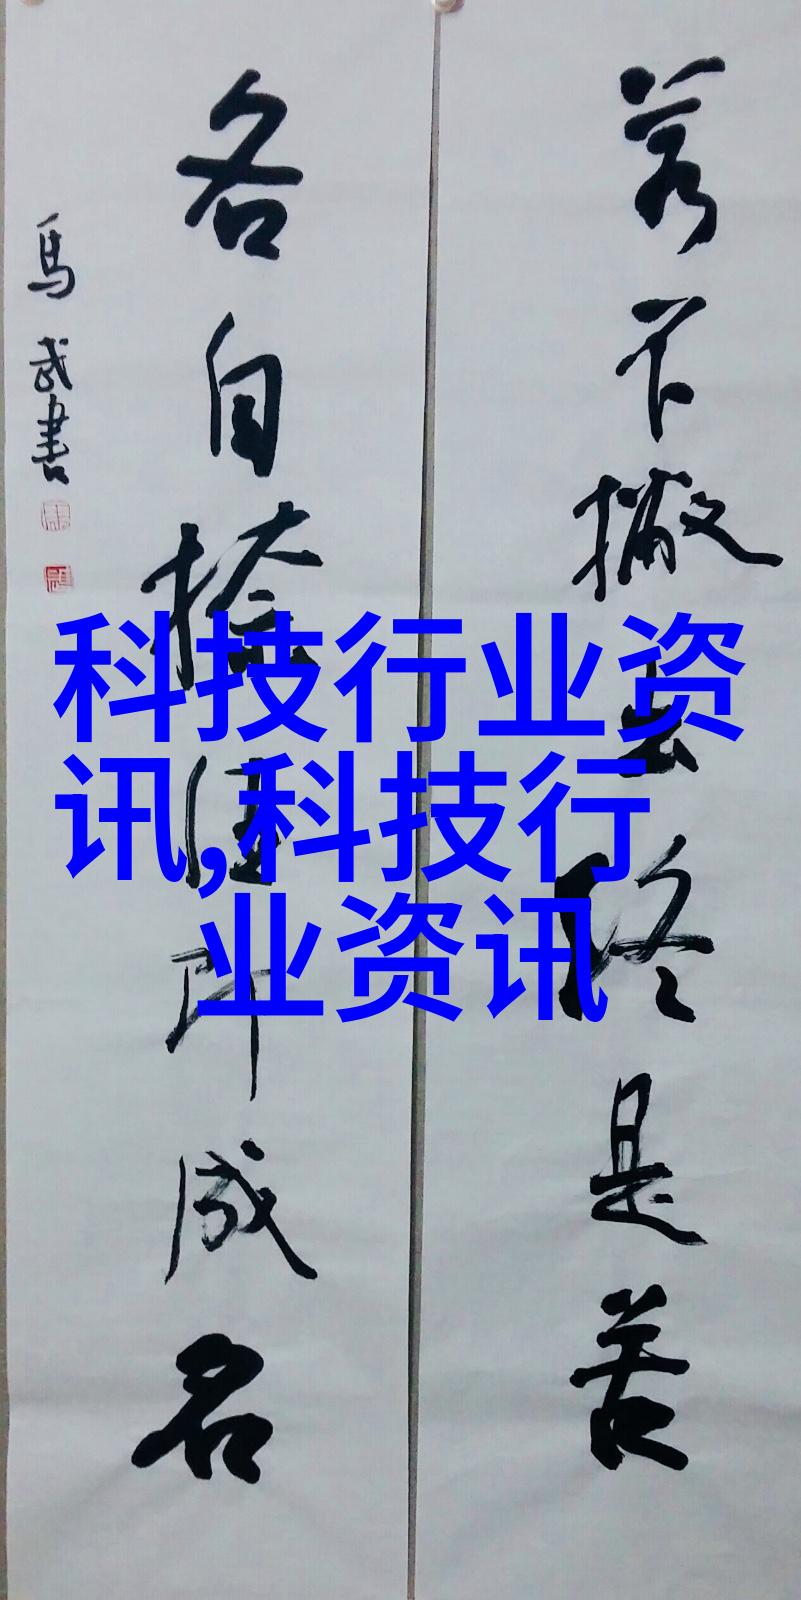 若不撇去终是苦
各自捺住即成名
馬武書
科技行业资
讯,科技行
业资讯